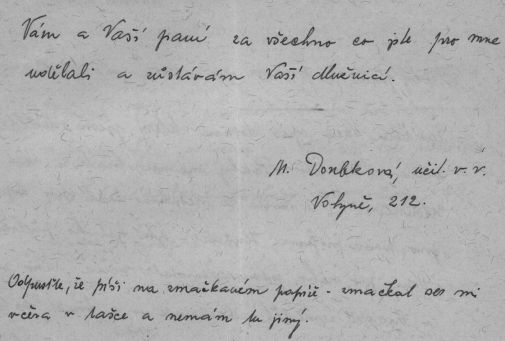 Vám a Vaší paní za všechno co jste pro mne
udělali a zůstávám Vaší dlužnicí.
M. Doubková, učit. v. v.
Volyně, 212.
Odpusťte, že píši na zmačkaném papíře - zmačkal se mi
včera v tašce a nemám tu jiný.